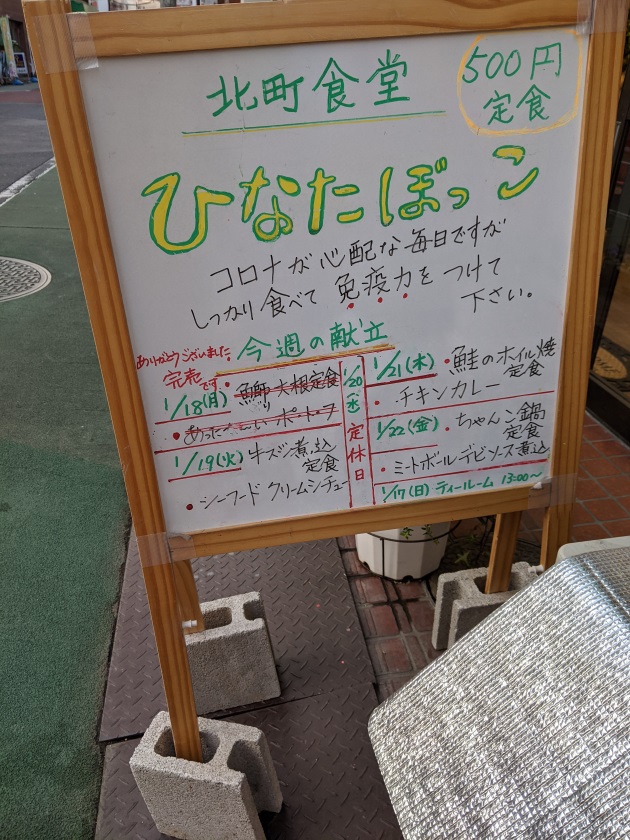 北町食堂
500円
定食
ひなたぼっこ
コロナが心配な毎日ですが
しっかり食べて 免疫力を つけて
下さい。
今週の献立
ありがとうございました
完売です
1/18(月)
・鰤大根定食
・あったかポトフ
1/19(火) 牛スジ煮込
定食
・シーフード クリームシチュー
1/20(水)定休日
1/21(木) ・鮭のホイル焼
定食
・チキンカレー
1/22(金) ・ちゃんこ鍋
定食
・ミートボールデミソース煮込
1/17(日) ティールーム 13:00〜